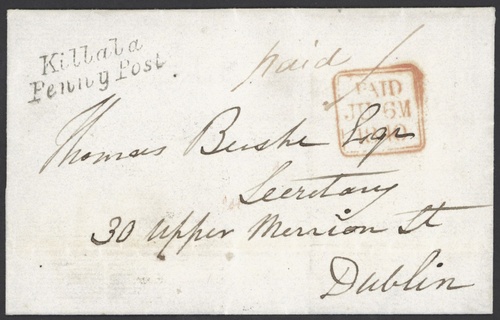 Killala
Penny Post
paid 1
PAID
6M
Thomas Bushe Esqr
Secretary
30 Upper Merrion St
Dublin